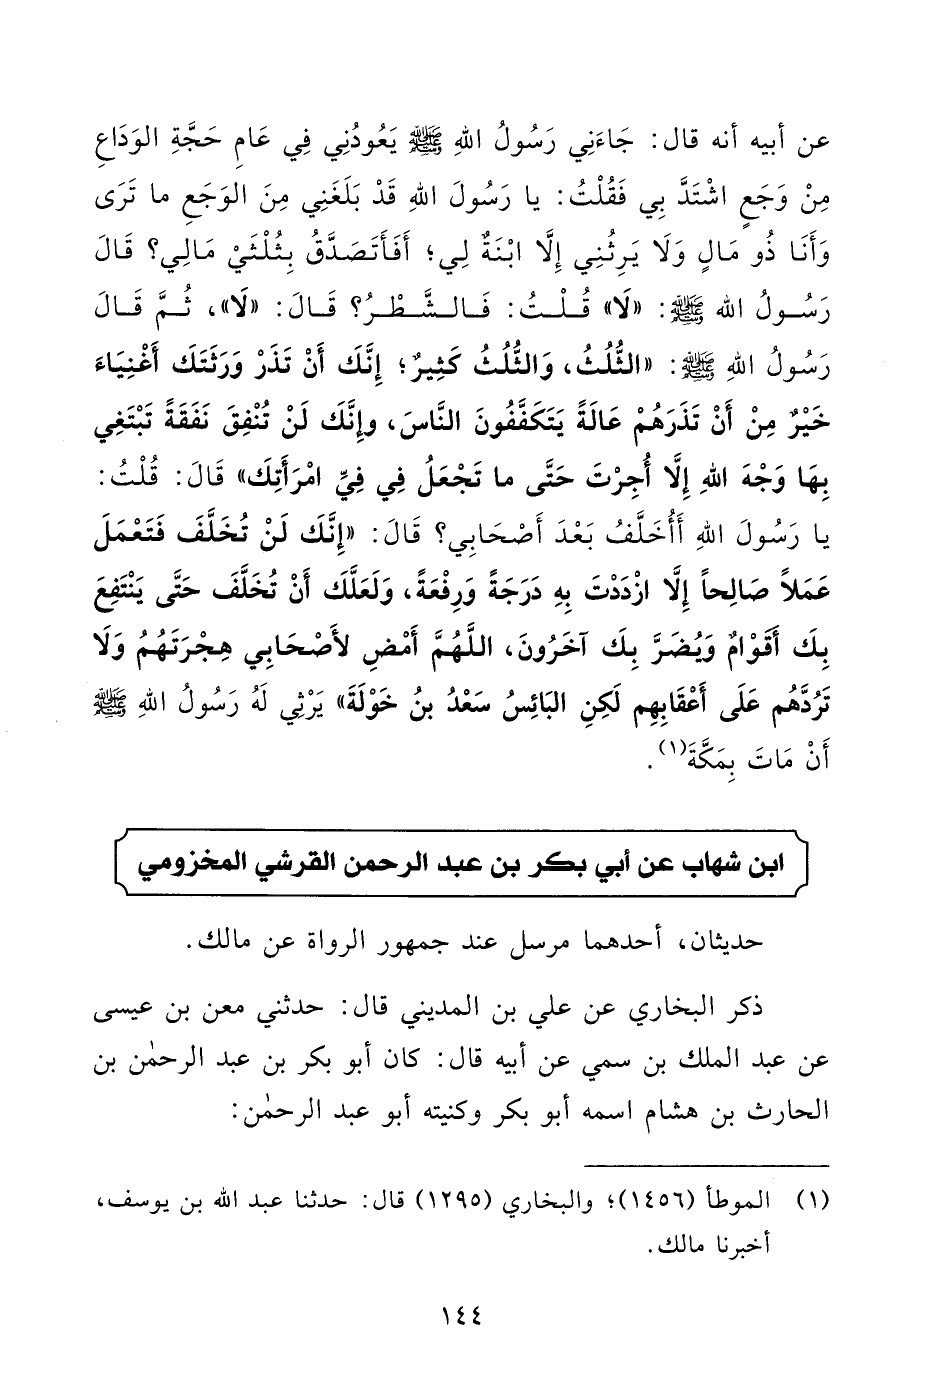 عن أبيه أنه قال: جَاءَنِي رَسُولُ اللهِ ﷺ يَعُودُنِي فِي عَامِ حَجَّةِ الوَدَاعِ
مِنْ وَجَعٍ اشْتَدَّ بِي فَقُلْتُ: يا رَسُولَ اللهِ قَدْ بَلَغَنِي مِنَ الوَجَعِ ما تَرَى
وَأَنَا ذُو مَالٍ وَلَا يَرِثُنِي إِلَّا ابْنَةٌ لِي؛ أَفَأَتَصَدَّقُ بِثُلْثَيْ مَالِي؟ قَالَ
رَسُولُ الله ﷺ: «لَا» قُلْتُ: فَالشَّطْرُ؟ قَالَ: «لَا»، ثُمَّ قَالَ
رَسُولُ اللهِ ﷺ: «الثُّلُثُ، وَالثُّلُثُ كَثِيرٌ؛ إِنَّكَ أَنْ تَذَرْ وَرَثَتَكَ أَغْنِيَاءَ
خَيْرٌ مِنْ أَنْ تَذَرَهُمْ عَالَةً يَتَكَفَّفُونَ النَّاسَ، وإِنَّكَ لَنْ تُنْفِقَ نَفَقَةً تَبْتَغِي
بِهَا وَجْهَ اللهِ إِلَّا أُجِرْتَ حَتَّى ما تَجْعَلُ فِي فِيِّ امْرَأَتِكَ» قَالَ: قُلْتُ:
يا رَسُولَ اللهِ أَأُخَلَّفُ بَعْدَ أَصْحَابِي؟ قَالَ: «إِنَّكَ لَنْ تُخَلَّفَ فَتَعْمَلَ
عَمَلاً صَالِحاً إِلَّا ازْدَدْتَ بِهِ دَرَجَةً وَرِفْعَةً، وَلَعَلَّكَ أَنْ تُخَلَّفَ حَتَّى يَنْتَفِعَ
بِكَ أَقْوَامٌ وَيُضَرَّ بِكَ آخَرُونَ، اللَّهُمَّ أَمْضِ لأَصْحَابِي هِجْرَتَهُمُ وَلَا
تَرُدَّهُم عَلَى أَعْقَابِهِم لَكِنِ البَائِسُ سَعْدُ بنُ خَوْلَةَ» يَرْثِي لَهُ رَسُولُ اللهِ ﷺ
أَنْ مَاتَ بِمَكَّةَ(١).
ابن شهاب عن أبي بكر بن عبد الرحمن القرشي المخزومي
حديثان، أحدهما مرسل عند جمهور الرواة عن مالك.
ذكر البخاري عن علي بن المديني قال: حدثني معن بن عيسى
عن عبد الملك بن سمي عن أبيه قال: كان أبو بكر بن عبد الرحمٰن بن
الحارث بن هشام اسمه أبو بكر وكنيته أبو عبد الرحمٰن:
(١) الموطأ (١٤٥٦)؛ والبخاري (١٢٩٥) قال: حدثنا عبد الله بن يوسف،
أخبرنا مالك.
١٤٤